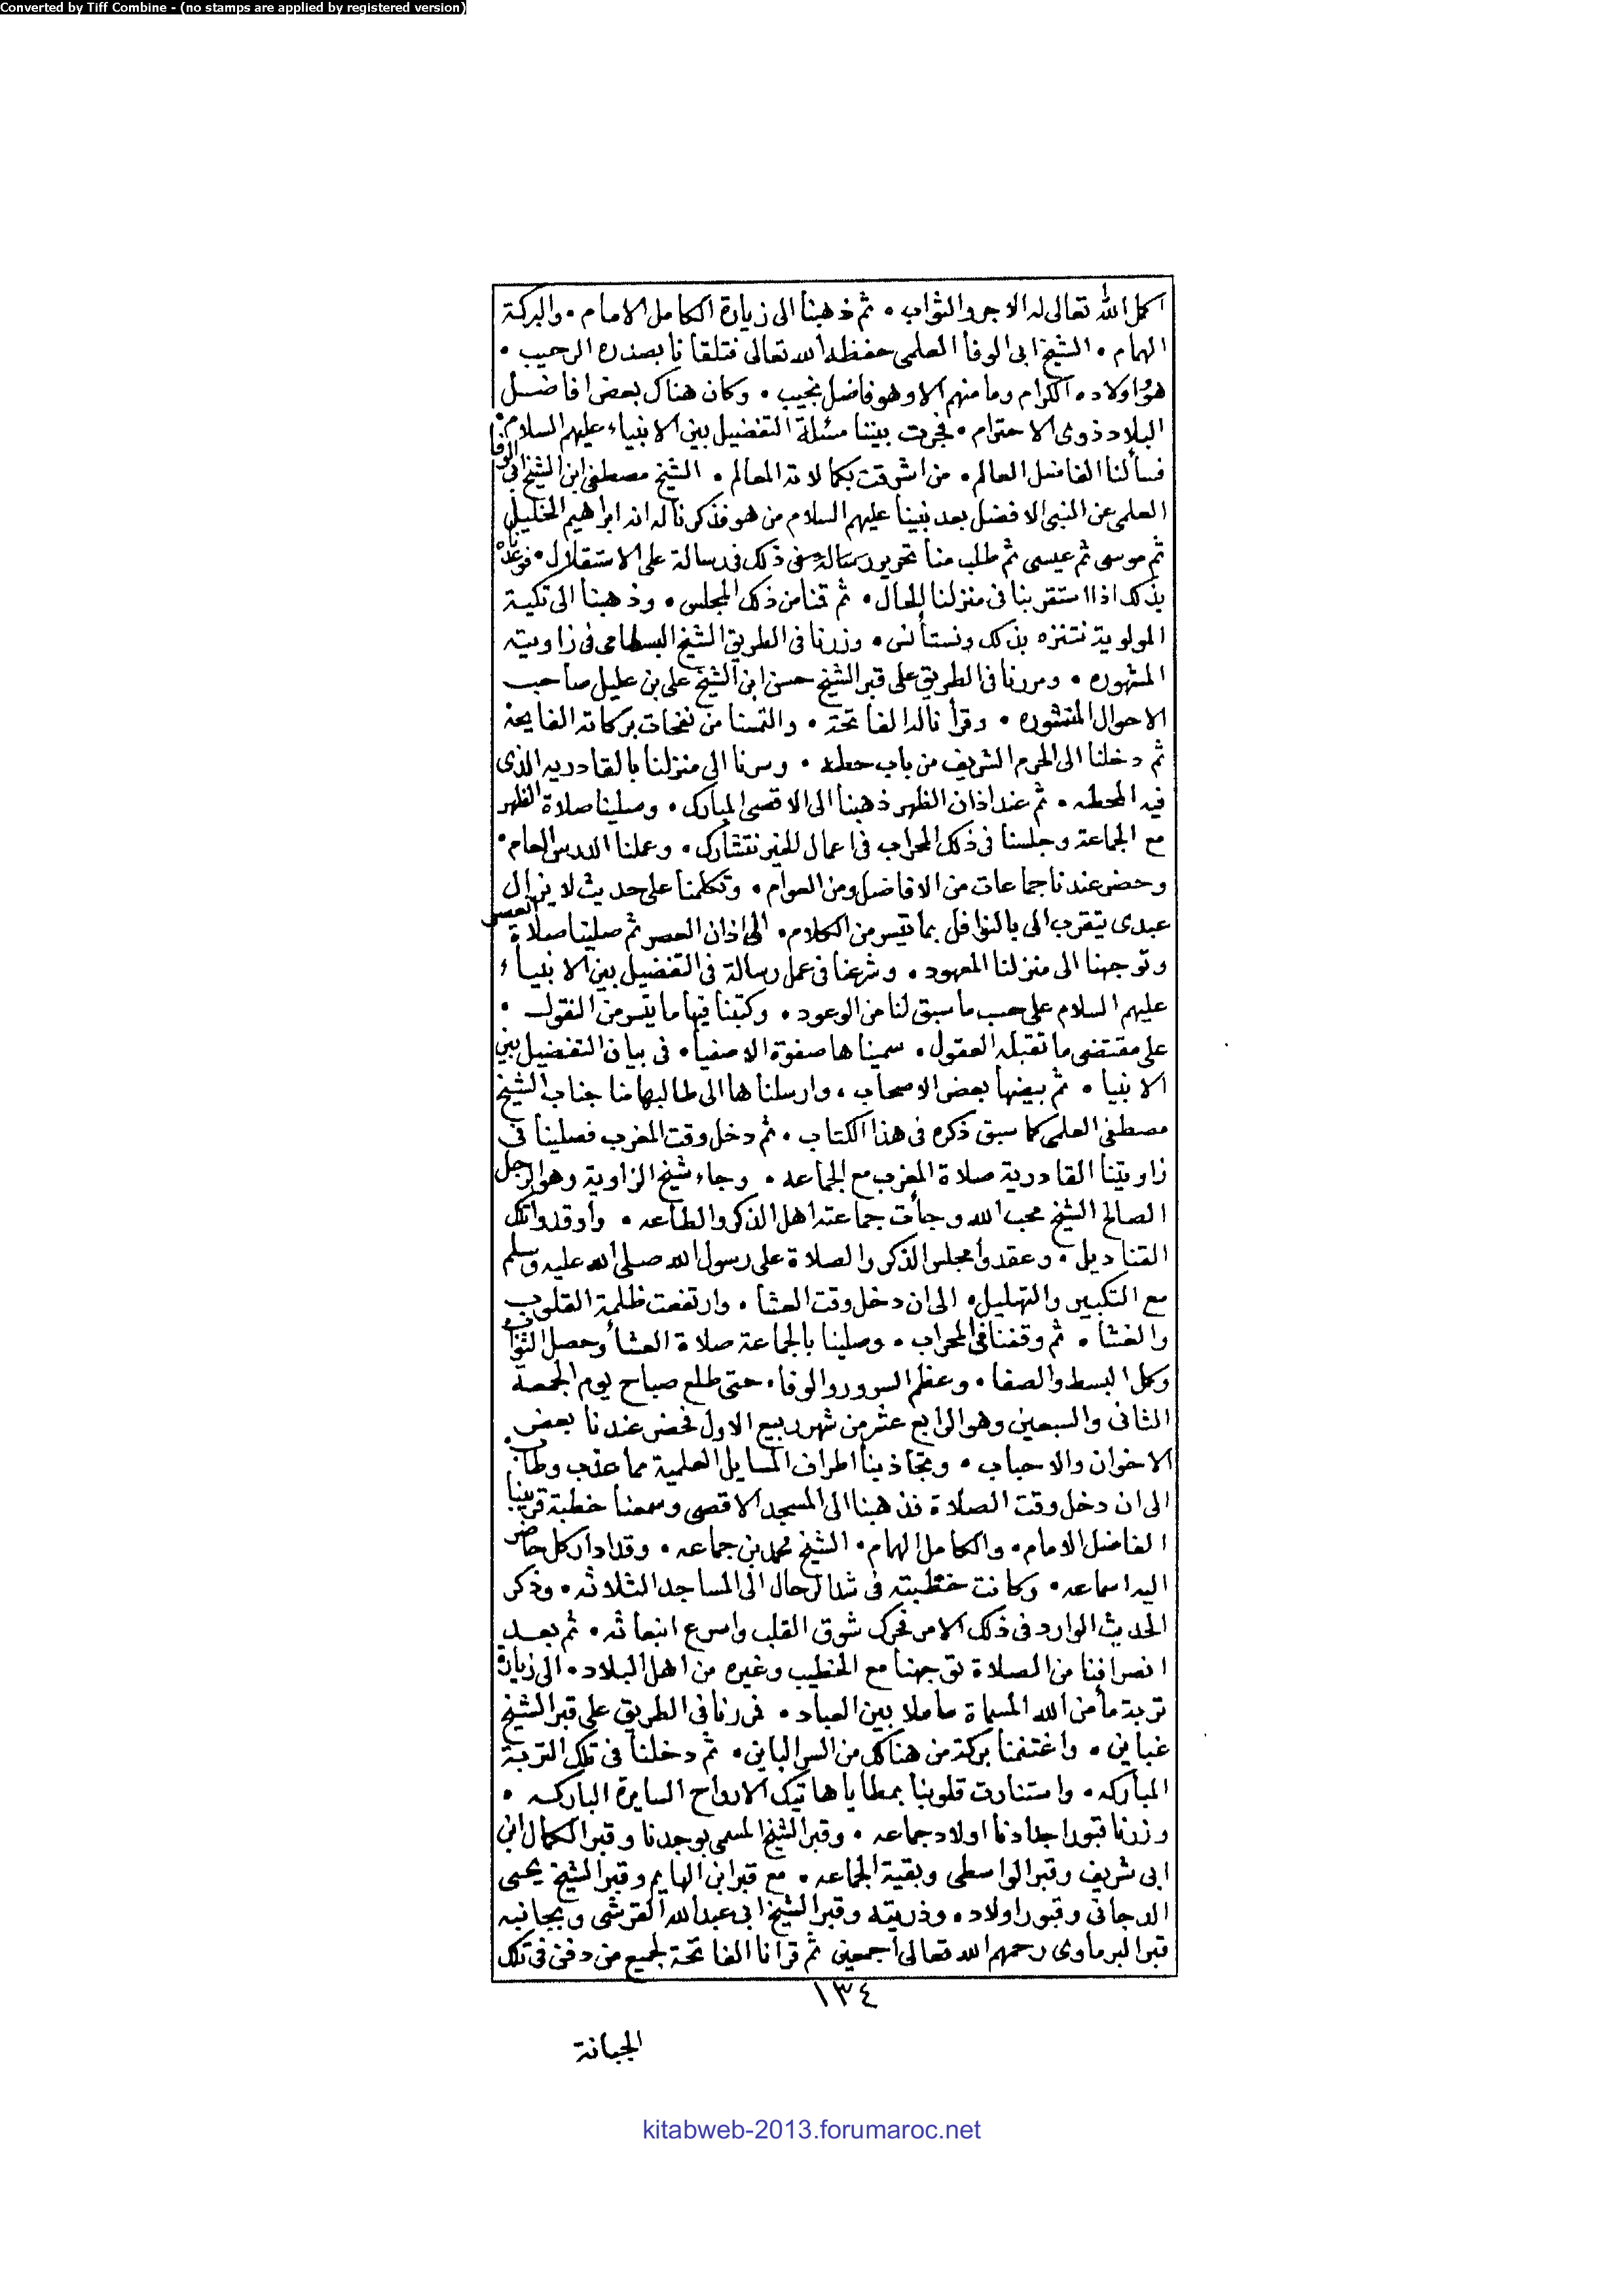 Converted by Tiff Combine - (no stamps are applied by registered version)
اكمل الله تعالى له الاجر والثواب • ثم ذهبنا الى زيارة الكامل الامام • والبركة
الهمام • الشيخ ابى الوفا العلمى حفظه الله تعالى فتلقانا بصدره الرحيب •
هو واولاده الكرام وما منهم الا وهو فاضل نجيب • وكان هناك بعض افاضل
البلاد ذوى الاحترام • فجرت بيننا مسئلة التفضيل بين الانبياء عليهم السلام •
فسألنا الفاضل العالم • من اشرقت بكمالاته المعالم • الشيخ مصطفى ابن الشيخ ابى الوفا
العلمى عن النبى الافضل بعد نبينا عليهم السلام من هو فذكرنا له انه ابراهيم الخليل
ثم موسى ثم عيسى ثم طلب منا تحرير رسالة فى ذلك فى رسالة على الاستقلال • فوعدناه
بذلك اذا استقربنا فى منزلنا الحال • ثم قمنا من ذلك المجلس • وذهبنا الى تكية
المولوية نتنزه بذلك ونستأنس • وزرنا فى الطريق الشيخ البسطامى فى زاويته
المشهوره • ومررنا فى الطريق على قبر الشيخ حسن ابن الشيخ على بن عليل صاحب
الاحوال المنشوره • وقرأنا له الفاتحة • والتمسنا من نفحات بركاته الفايحة
ثم دخلنا الى الحرم الشريف من باب حطه • وسرنا الى منزلنا بالقادريه الذى
فيه المحطه • ثم عند اذان الظهر ذهبنا الى الاقصى المبارك • وصلينا صلاة الظهر
مع الجماعة وجلسنا فى ذلك المحراب فى اعمال الخير نتشارك • وعملنا الدرس العام •
وحضر عندنا جماعات من الافاضل ومن العوام • وتكلمنا على حديث لا يزال
عبدى يتقرب الى بالنوافل بما تيسر من الكلام • الى اذان العصر ثم صلينا صلاة العصر
وتوجهنا الى منزلنا المعهود • وشرعنا فى عمل رسالة فى التفضيل بين الانبياء
عليهم السلام على حسب ما سبق لنا من الوعود • وكتبنا فيها ما تيسر من النقول •
على مقتضى ما تقبله العقول • سميناها صفوة الاصفيا • فى بيان التفضيل بين
الانبيا • ثم بيضها بعض الاصحاب • وارسلناها الى طالبها منا جناب الشيخ
مصطفى العلمى كما سبق ذكره فى هذا الكتاب • ثم دخل وقت المغرب فصلينا فى
زاويتنا القادرية صلاة المغرب مع الجماعه • وجاء شيخ الزاوية وهو الرجل
الصالح الشيخ محب الله وجأت جماعته اهل الذكر والطاعه • واوقدوا تلك
القناديل • وعقدوا مجلس الذكر والصلاة على رسول الله صلى الله عليه وسلم
مع التكبير والتهليل • الى ان دخل وقت العشا • وارتفعت ظلمة القلوب
والغشا • ثم وقفنا فى المحراب • وصلينا بالجماعة صلاة العشا وحصل الثواب
وكمل البسط والصفا • وعظم السرور والوفا • حتى طلع صباح يوم الجمعة
الثانى والسبعين وهو الرابع عشر من شهر ربيع الاول فحضر عندنا بعض
الاخوان والاحباب • وتجاذبنا اطراف المسايل العلمية مما عذب وطاب •
الى ان دخل وقت الصلاة فذهبنا الى المسجد الاقصى وسمعنا خطبة قريبنا
الفاضل الامام • والكامل الهمام • الشيخ محمد بن جماعه • وقد ادار كل حاضر
اليه اسماعه • وكانت خطبته فى شد الرحال الى المساجد الثلاثه • وذكر
الحديث الوارد فى ذلك الامر فحرك شوق القلب واسرع انبعاثه • ثم بعد
انصرافنا من الصلاة توجهنا مع الخطيب وغيره من اهل البلاد • الى زيارة
تربة مأمن الله المسماة ماملا بين العباد • فمررنا فى الطريق على قبر الشيخ
غباين • واغتنمنا بركة من هنالك من السر الباين • ثم دخلنا فى تلك التربة
المباركه • واستنارت قلوبنا بمطايا هاتيك الارواح السايرة الباركه •
وزرنا قبور اجدادنا اولاد جماعه • وقبر الشيخ المسمى بوجدنا وقبر الكمال ابن
ابى شريف وقبر الواسطى وبقية الجماعه • مع قبر ابن الهايم وقبر الشيخ يحيى
الدجانى وقبور اولاده وذريته وقبر الشيخ ابى عبد الله القرشى وبجانبه
قبر البرماوى رحمهم الله تعالى اجمعين ثم قرانا الفاتحة لجميع من دفن فى تلك
١٣٤
الجبانة
kitabweb-2013.forumaroc.net